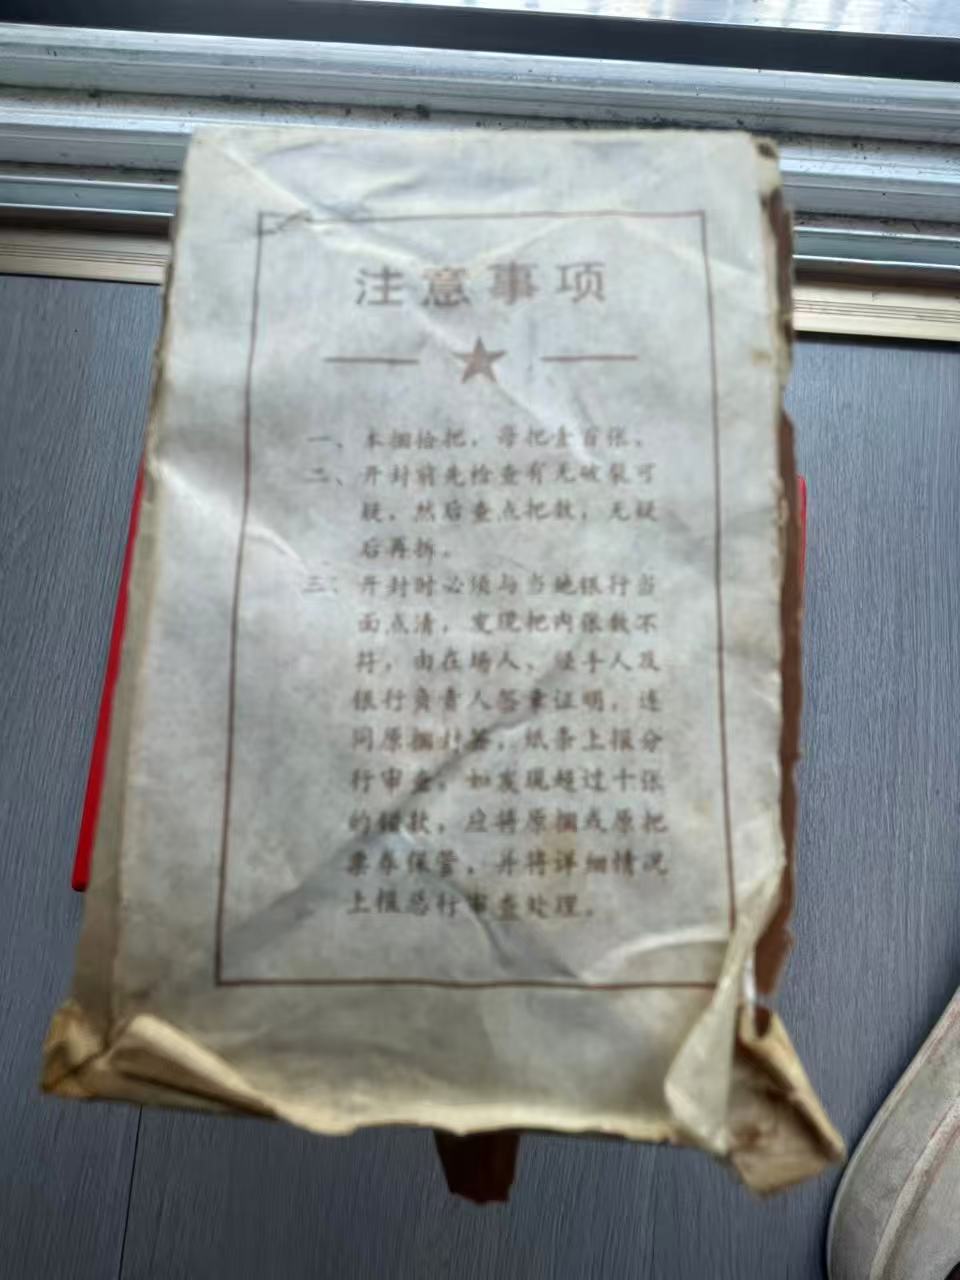 注意事项
一、本捆拾把，每把壹百张。
二、开封前先检查有无破裂可
疑，然后查点把数，无疑
后再拆。
三、开封时必须与当地银行当
面点清，发现把内张数不
符，由在场人、经手人及
银行负责人签章证明，连
同原捆封签，纸条上报分
行审查，如发现超过十张
的错款，应将原捆或原把
票券保管，并将详细情况
上报总行审查处理。